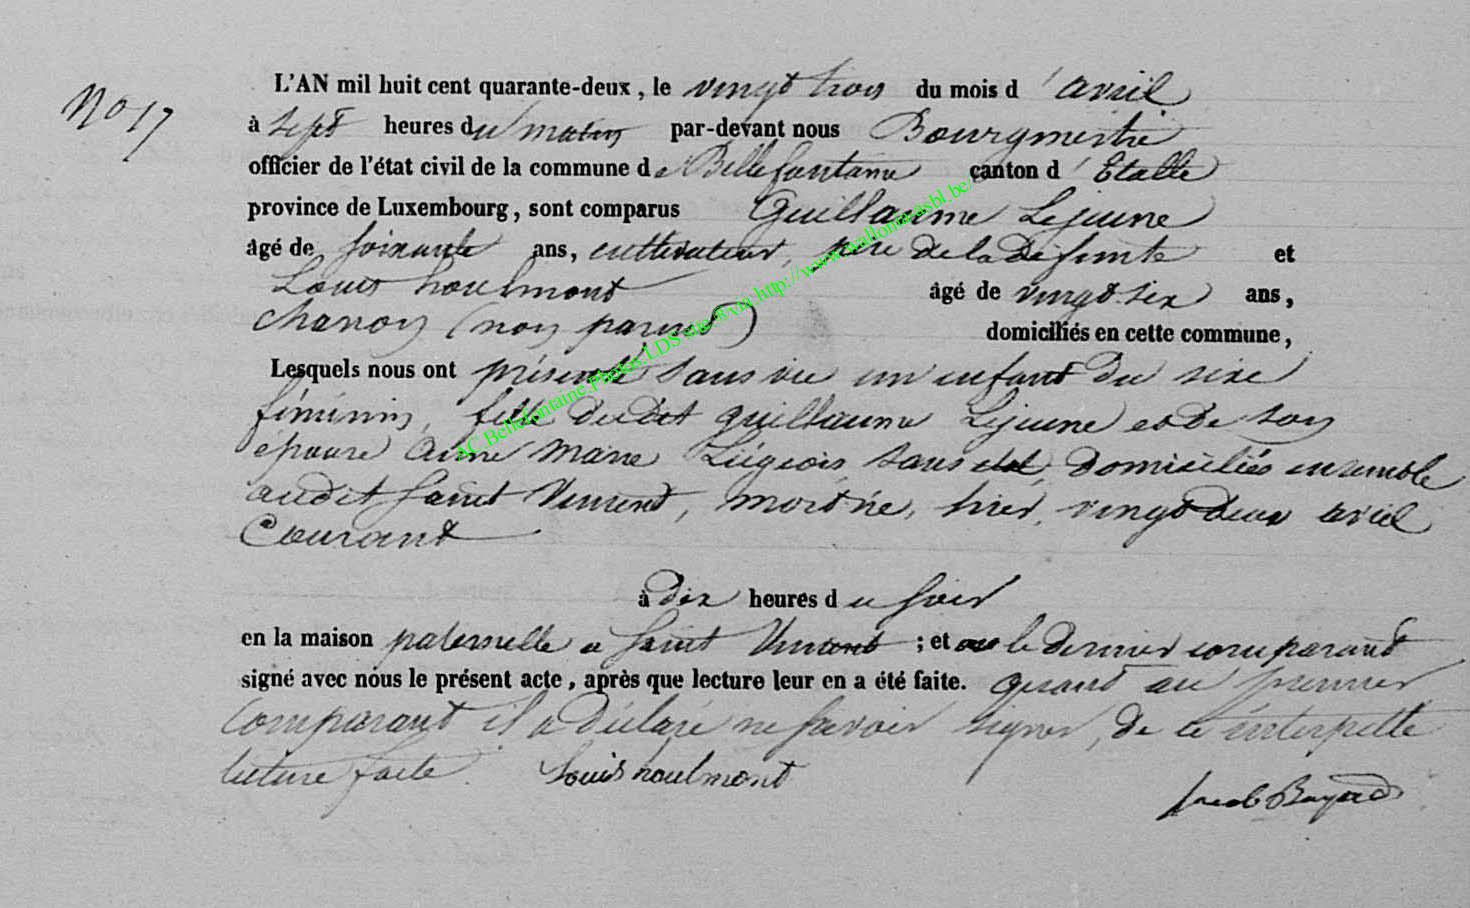 No 17
L'AN mil huit cent quarante-deux, le vingt trois du mois d'avril
à sept heures du matin par-devant nous Bourgmestre
officier de l'état civil de la commune de Bellefontaine canton d'Etalle
province de Luxembourg, sont comparus Guillaume Lejeune
âgé de soixante ans, cultivateur, père de la défunte et
Louis houlmont âgé de vingt six ans,
charron (non parent) domiciliés en cette commune,
Lesquels nous ont présenté sans vie un enfant du sexe
féminin, fille dudit guillaume Lejeune et de son
epouse Anne Marie Liégeois, sans état, domiciliés ensemble
audit Saint Vincent, mort née, hier, vingt deux avril
Courant
à dix heures du soir
en la maison paternelle a Saint Vincent ; et le dernier comparant
signé avec nous le présent acte, après que lecture leur en a été faite. quant au premier
comparant il a déclaré ne savoir signer, de ce interpellé
lecture faite. Louis houlmont
Jacob Bayard
AC.Bellefontaine.Photos.LDS site * via http://www.wallonia.asbl.be/